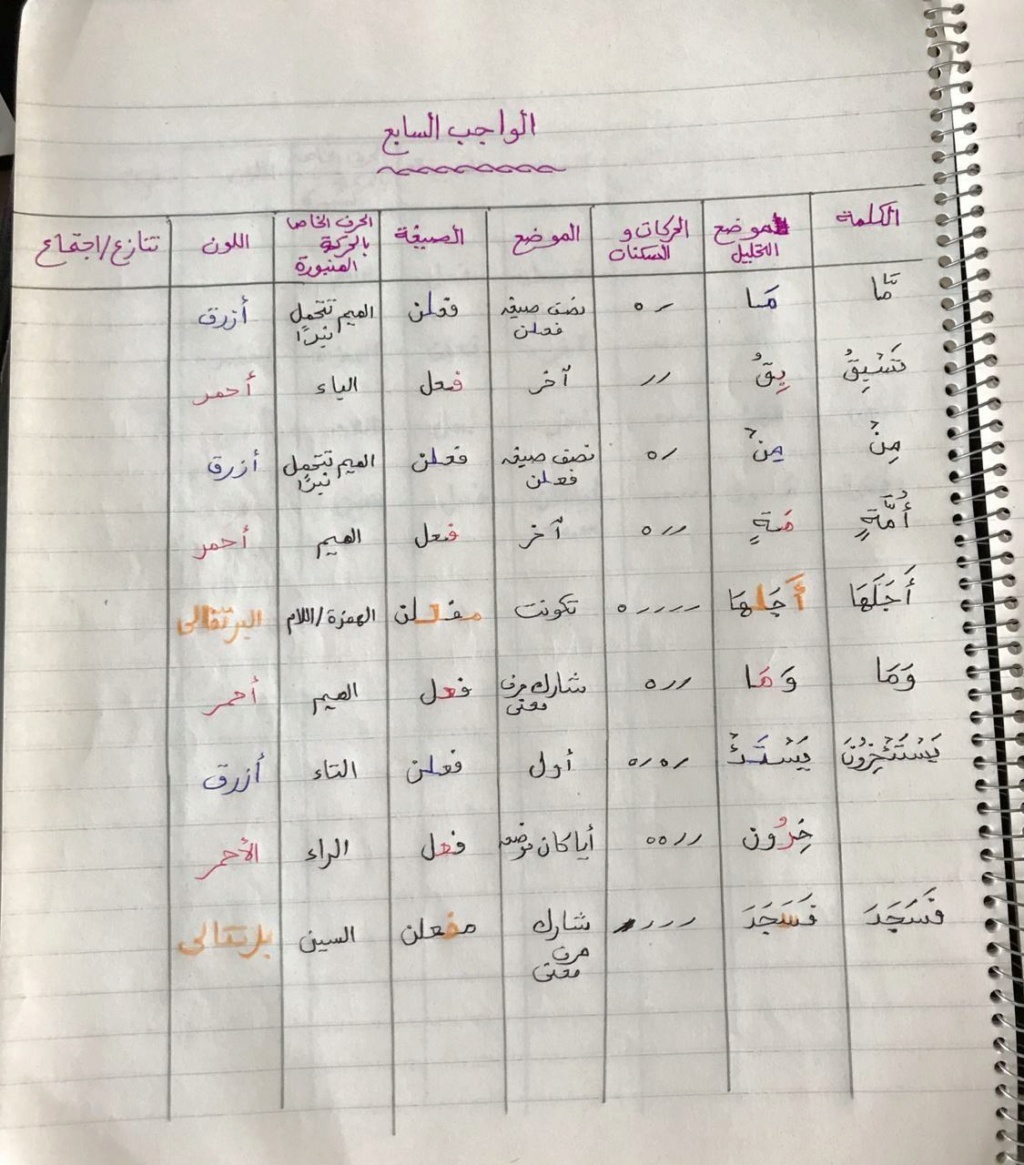 الواجب السابع
الكلمة | موضع التحليل | الحركات و السكنات | الموضع | الصيغة | الحرف الخاص بالحركة المنبورة | اللون | تنازع/اجتماع
مَّا | مَا | ره | نصف صيغه فعلن | فعلن | الميم تتحمل نبرًا | أزرق
تَسْبِقُ | بِقُ | رر | آخر | فعل | الباء | أحمر
مِنْ | مِنْ | ره | نصف صيغه فعلن | فعلن | الميم تتحمل نبرًا | أزرق
أُمَّةٍ | مَةٍ | رره | آخر | فعل | الميم | أحمر
أَجَلَهَا | أَجَلَهَا | رررره | تكونت | مفعلن | الهمزة/اللام | البرتقالى
وَمَا | وَمَا | رره | شارك حرف معنى | فعل | الميم | أحمر
يَسْتَئْخِرُونَ | يَسْتَئْ | رهره | أول | فعلن | التاء | أزرق
خِرُون | رره ه | أيا كان موضعه | فعل | الراء | الأحمر
فَسَجَدَ | فَسَجَدَ | رررر | شارك حرف معنى | مفعلن | السين | برتقالى